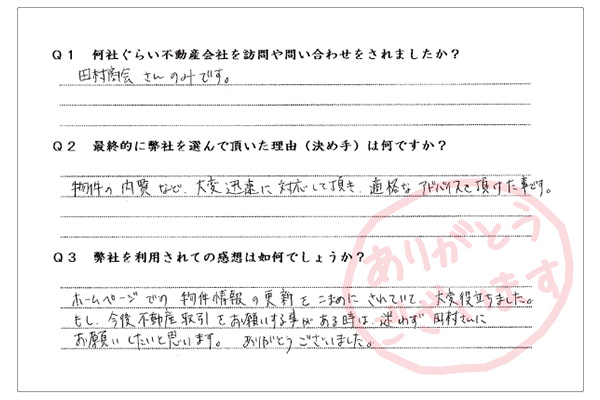 Q1 何社ぐらい不動産会社を訪問や問い合わせをされましたか？
田村商会さんのみです。
Q2 最終的に弊社を選んで頂いた理由（決め手）は何ですか？
物件の内覧など、大変迅速に対応して頂き、適格なアドバイスを頂けた事です。
Q3 弊社を利用されての感想は如何でしょうか？
ホームページでの物件情報の更新をこまめにされていて、大変役立ちました。
もし、今後不動産取引をお願いする事がある時は、迷わず田村さんに
お願いしたいと思います。 ありがとうございました。
ありがとう
ございます